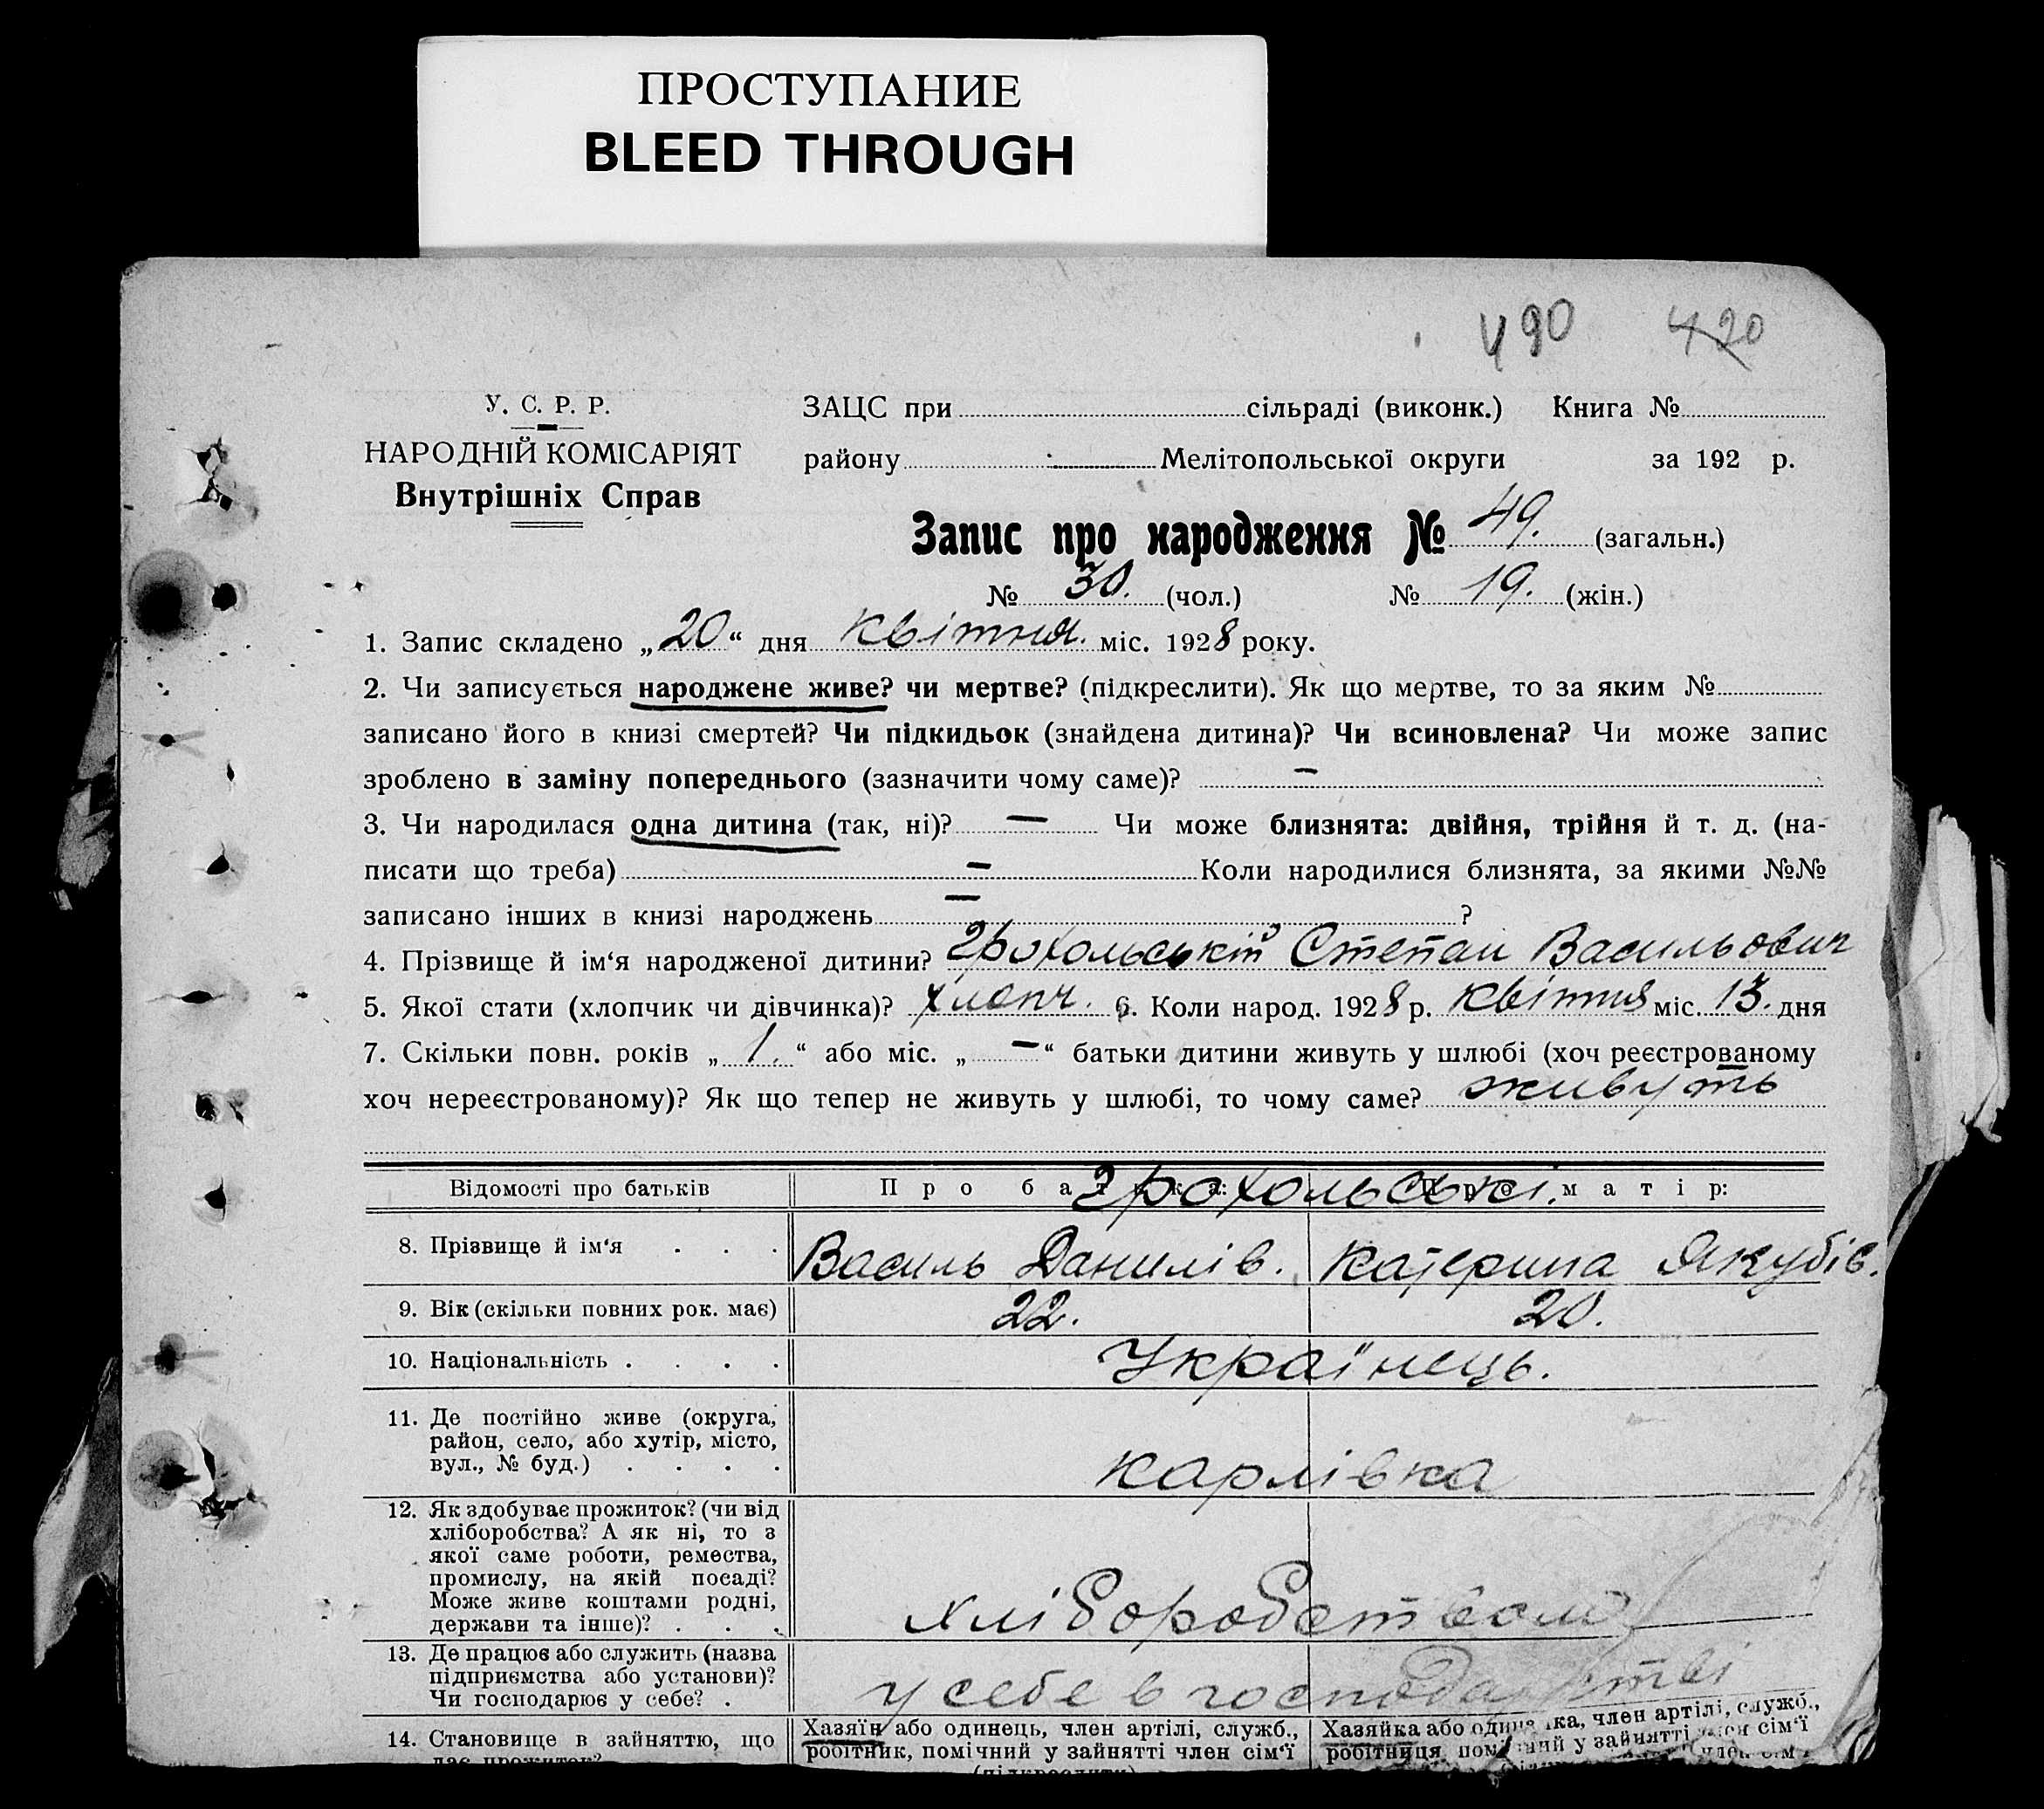 ПРОСТУПАНИЕ
BLEED THROUGH
490 420
У. С. Р. Р.
НАРОДНІЙ КОМІСАРІЯТ
Внутрішніх Справ
ЗАЦС при сільраді (виконк.) Книга №
району Мелітопольської округи за 192 р.
Запис про народження № 49. (загальн.)
№ 30. (чол.) № 19. (жін.)
1. Запис складено „20“ дня квітня. міс. 1928 року.
2. Чи записується народжене живе? чи мертве? (підкреслити). Як що мертве, то за яким №
записано його в книзі смертей? Чи підкидьок (знайдена дитина)? Чи всиновлена? Чи може запис
зроблено в заміну попереднього (зазначити чому саме)? —
3. Чи народилася одна дитина (так, ні)? — Чи може близнята: двійня, трійня й т. д. (на-
писати що треба) — Коли народилися близнята, за якими №№
записано інших в книзі народжень — ?
4. Прізвище й ім‘я народженої дитини? Грохольській Степан Васильович
5. Якої стати (хлопчик чи дівчинка)? хлопч. 6. Коли народ. 1928 р. квітня міс. 13. дня
7. Скільки повн. років „1.“ або міс. „—“ батьки дитини живуть у шлюбі (хоч реєстрованому
хоч нереєстрованому)? Як що тепер не живуть у шлюбі, то чому саме? живуть
Відомості про батьків Про батька: Про матір:
Грохольські.
8. Прізвище й ім‘я . . . Василь Данилів. Катерина Якубів.
9. Вік (скільки повних рок. має) 22. 20.
10. Національність . . . . Українець.
11. Де постійно живе (округа,
район, село, або хутір, місто,
вул., № буд.) . . . .
Карлівка
12. Як здобуває прожиток? (чи від
хліборобства? А як ні, то з
якої саме роботи, ремества,
промислу, на якій посаді?
Може живе коштами родні,
держави та інше)? . . .
хліборобством
13. Де працює або служить (назва
підприємства або установи)?
Чи господарює у себе? .
у себе в господарстві
14. Становище в зайняттю, що
дає прожиток?
Хазяїн або одинець, член артілі, служб.,
робітник, помічний у зайнятті член сім‘ї
(підкреслити)
Хазяйка або одиначка, член артілі, служб.,
робітниця, помічний у зайнятті член сім‘ї